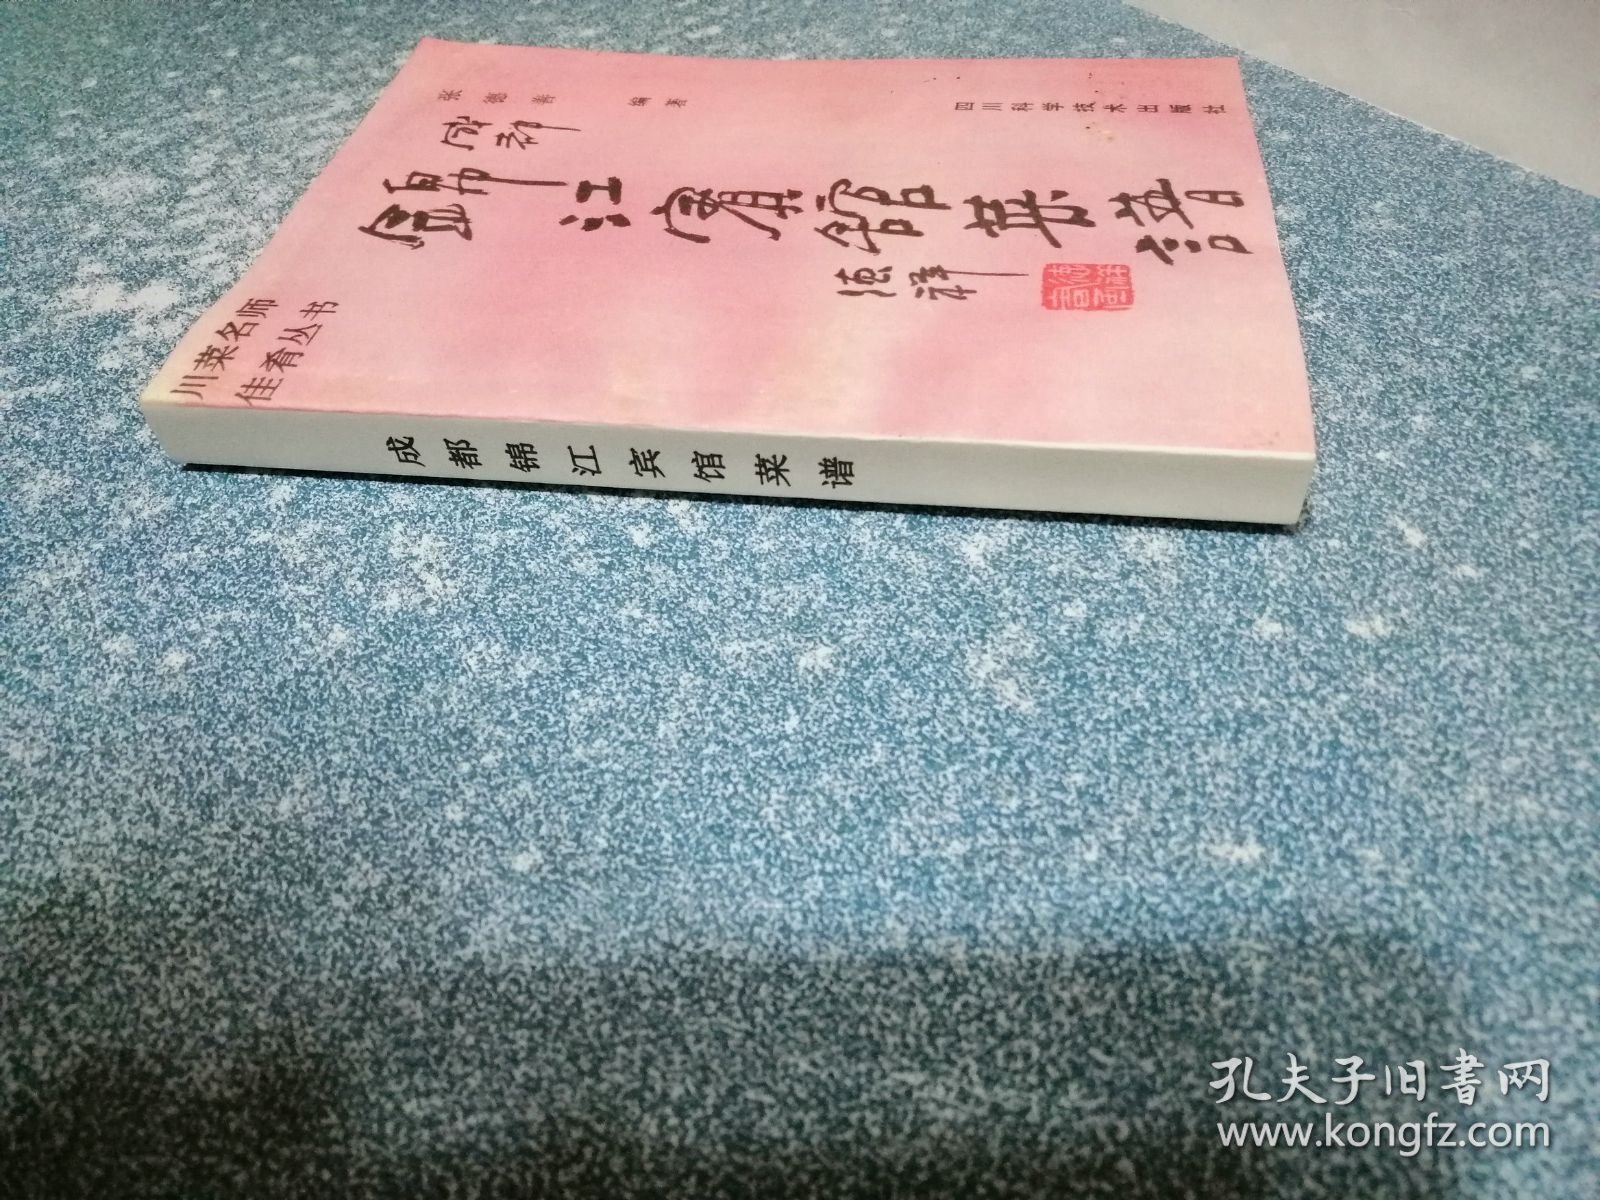 张德善 编著
四川科学技术出版社
成都
錦江賓館菜譜
德祥
川菜名师
佳肴丛书
成都锦江宾馆菜谱
孔夫子旧書网
www.kongfz.com